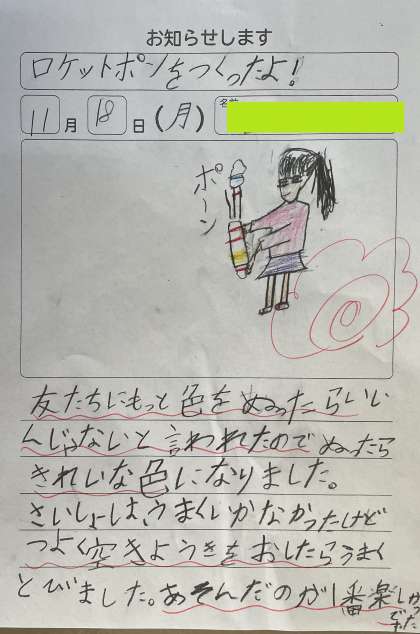 お知らせします
ロケットポンをつくったよ!
11月18日(月)
名前
ポーン
友だちにもっと色をぬったらいい
んじゃないと言われたのでぬったら
きれいな色になりました。
さいしょはうまくいかなかったけど
つよく空きようきをおしたらうまく
とびました。あそんだのが1番楽しかっ
たです